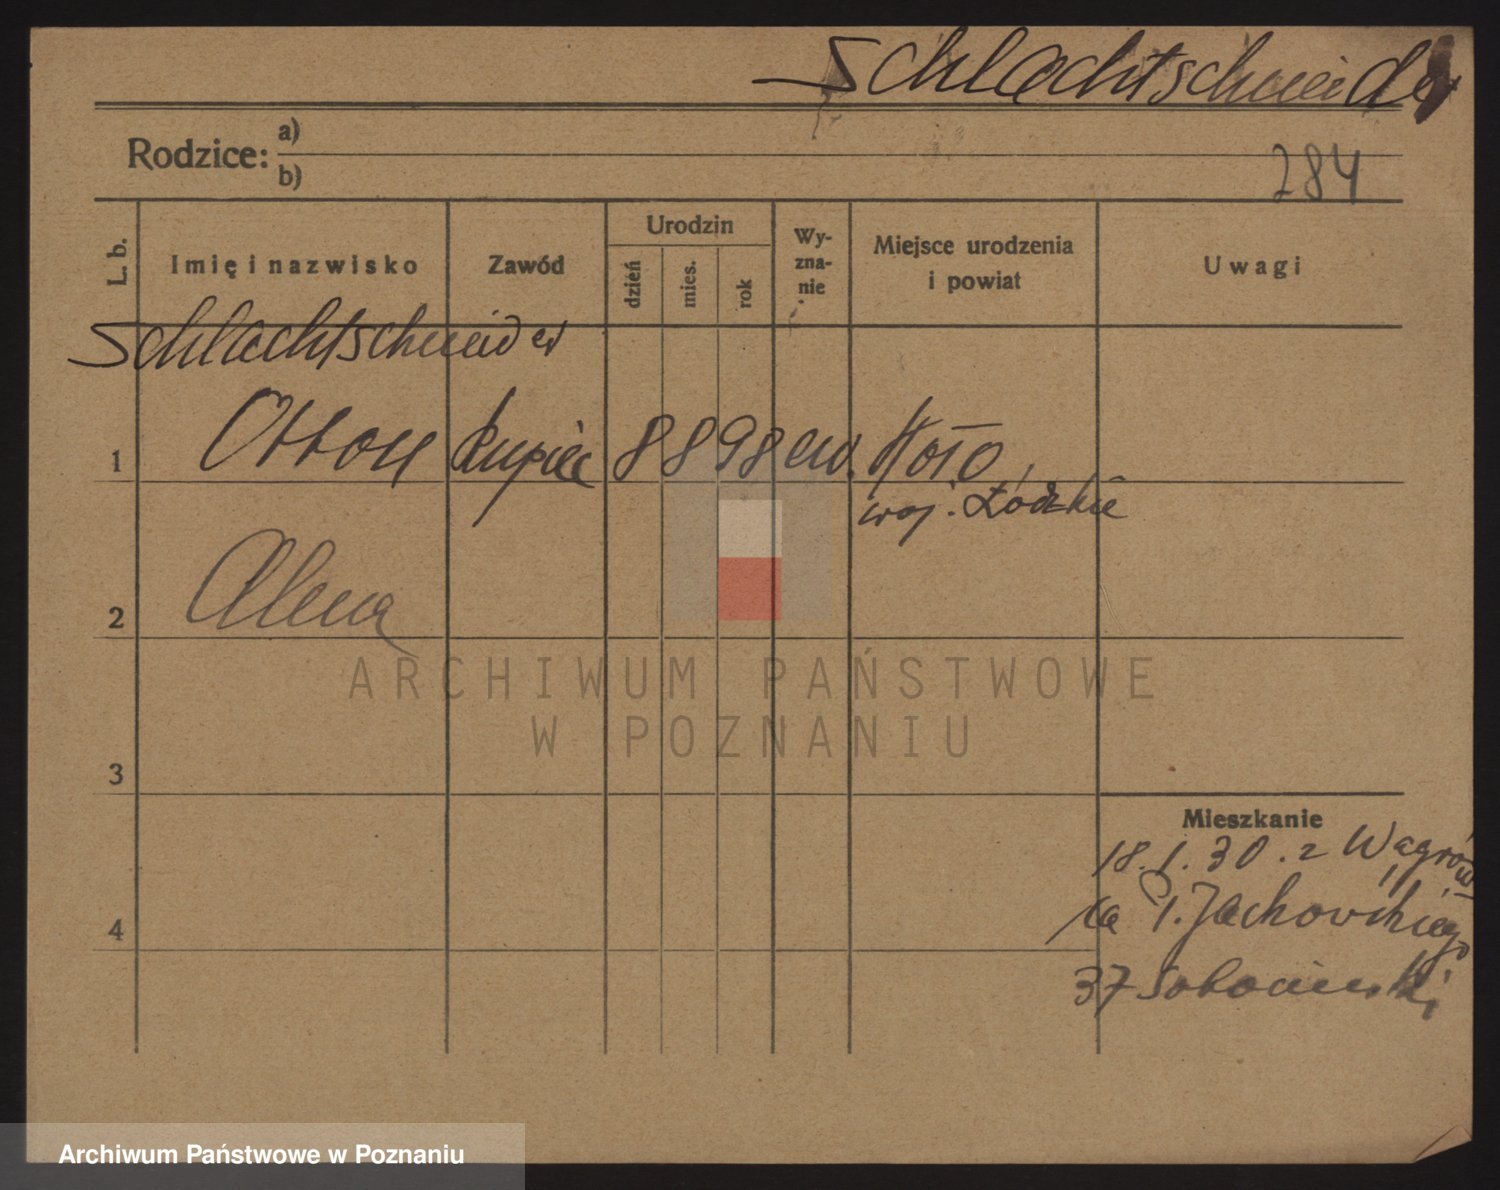 Schlachtschneider
Rodzice: a)
b)
284
L. b.
Imię i nazwisko
Zawód
Urodzin
dzień
mies.
rok
Wy-
zna-
nie
Miejsce urodzenia
i powiat
Uwagi
Schlachtschneider
1 Otton kupiec 8 8 98 ew. Koło
woj. Łódzkie
2 Alena
ARCHIWUM PAŃSTWOWE
W POZNANIU
3
Mieszkanie
18.1.30. z Wągrów
4
37 Sobocinski
Archiwum Państwowe w Poznaniu